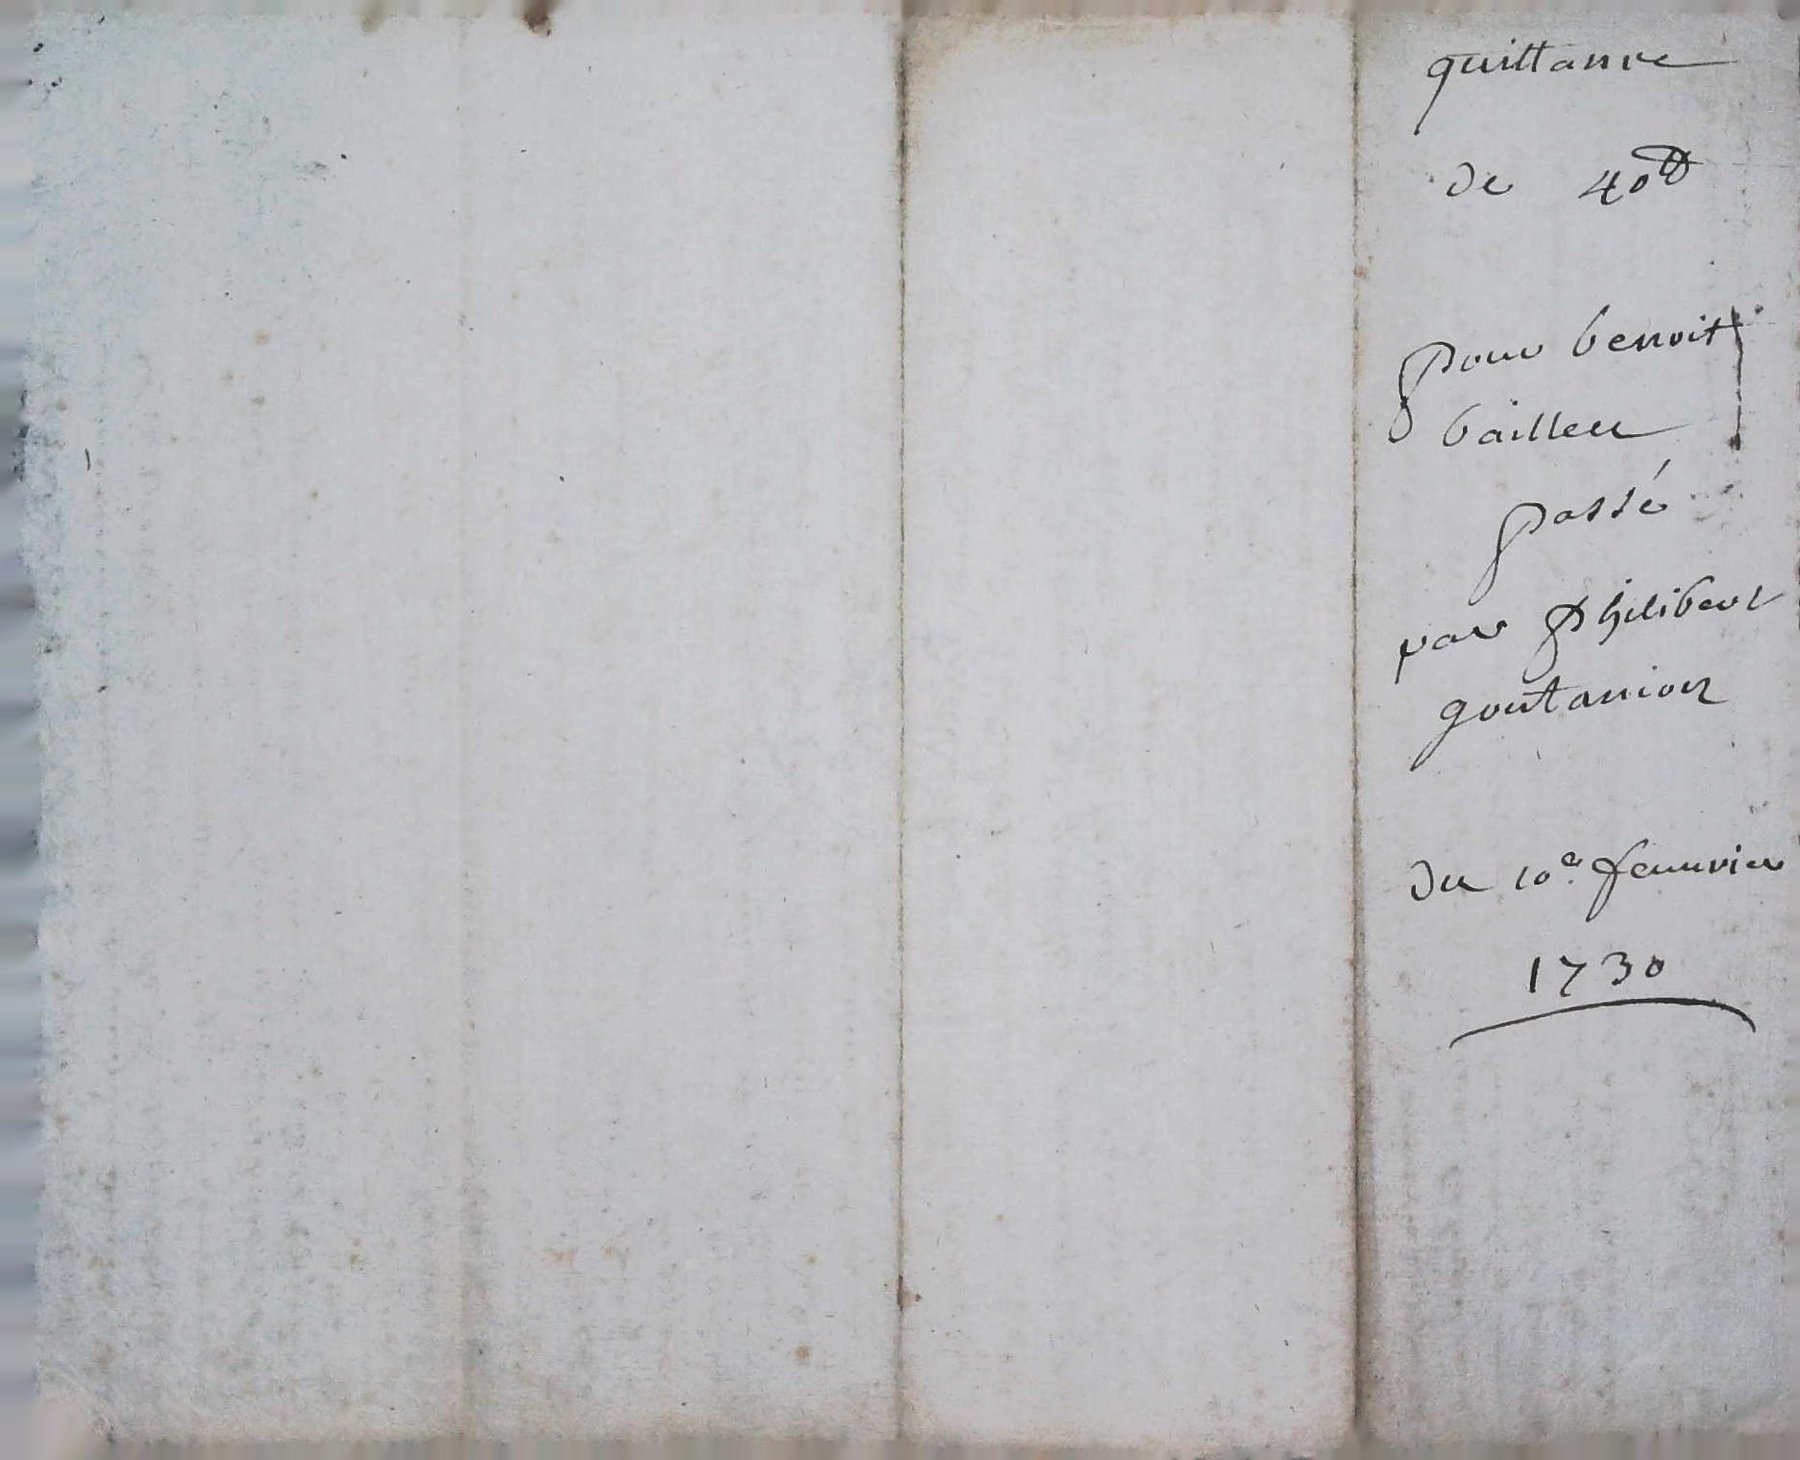 quittance
de 40₶
pour benoit
bailleu
passé
par philibert
goutanion
du 10e Januvier
1730